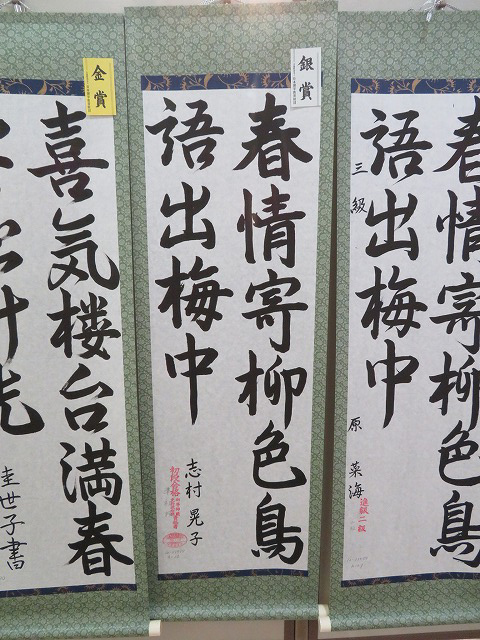 金賞
喜気楼台満春
圭世子書
銀賞
春情寄柳色鳥
語出梅中
志村晃子
初段合格
春情寄柳色鳥
語出梅中
三級
原菜海
進級二級